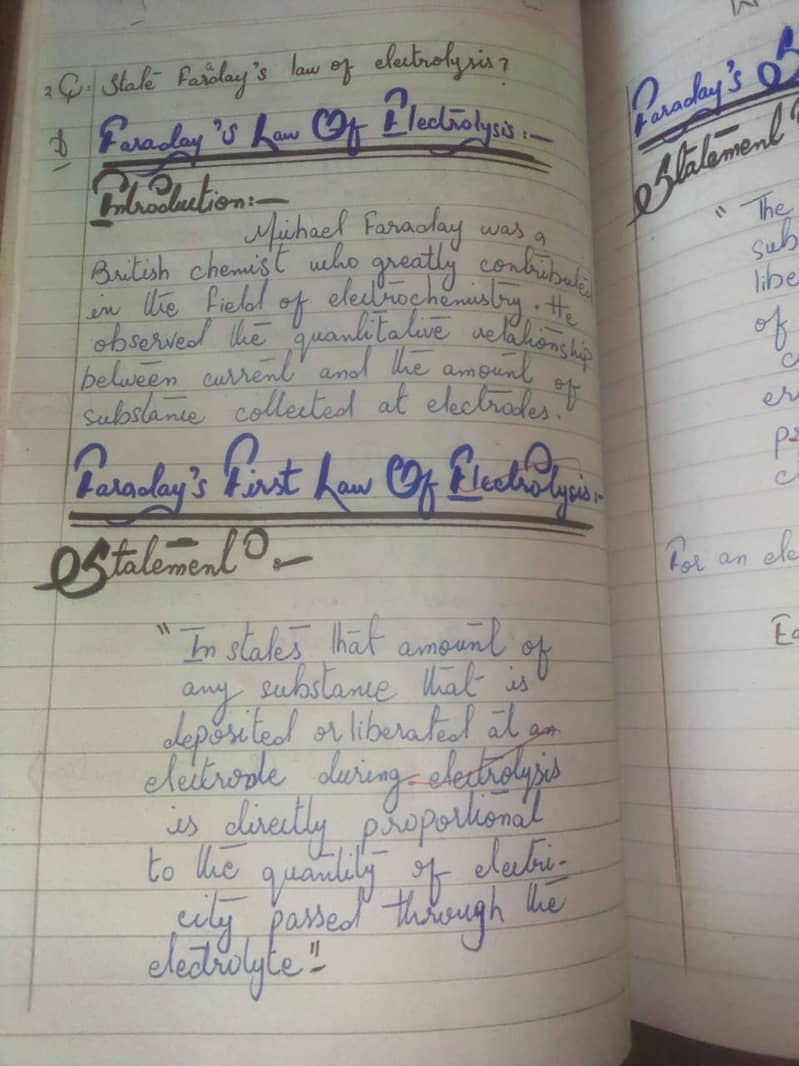 Q: State Faraday's law of electrolysis?
Faraday's Law Of Electrolysis:—
Introduction:—
Michael Faraday was a
British chemist who greatly contributed
in the field of electrochemistry. He
observed the quantitative relationship
between current and the amount of
substance collected at electrodes.
Faraday's First Law Of Electrolysis:-
Statement:—
"In states that amount of
any substance that is
deposited or liberated at an
electrode during electrolysis
is directly proportional
to the quantity of electri-
city passed through the
electrolyte"
Faraday's
Statement
" The
sub
libe
of
c
er
p
c
For an ele
Ea